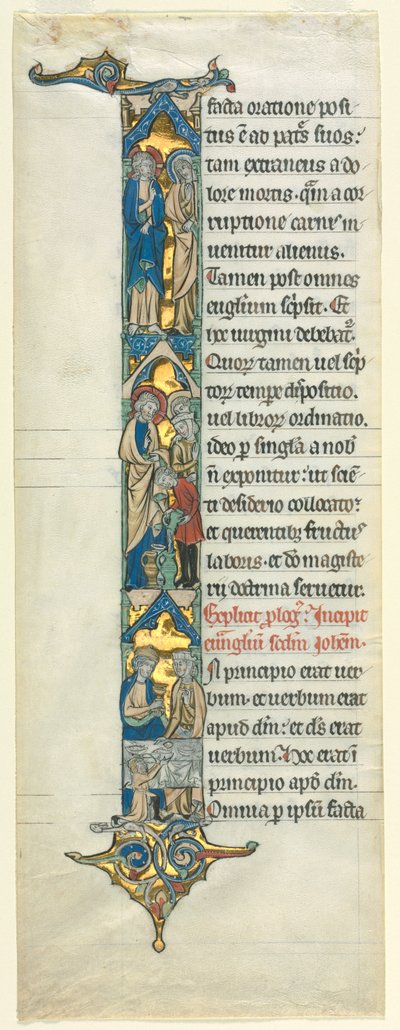 facta oratione posi-
tus ē ad patēs suos:
tam extraneus a do
lore mortis. qm̄ a cor
ruptione carnis in
uenitur alienus.
Tamen post omnes
euglium scpsit. Et
hoc uirgini debebat.
Quoꝝ tamen uel scp
toꝝ tempe dispositio.
uel libroꝝ ordinatio.
ideo p singla a nob
n̄ exponitur: ut sciē
ti desiderio collocato:
et querentibꝫ fructus
laboris. et do magiste
rii doctrina seruetur.
Explicit plogꝰ. Incipit
euuangliū scdm Johēm.
IN principio erat uer
bum. et uerbum erat
apud dm̄: et ds erat
uerbum. Hoc erat ī
principio apd dm̄.
Omnia p ipsū facta